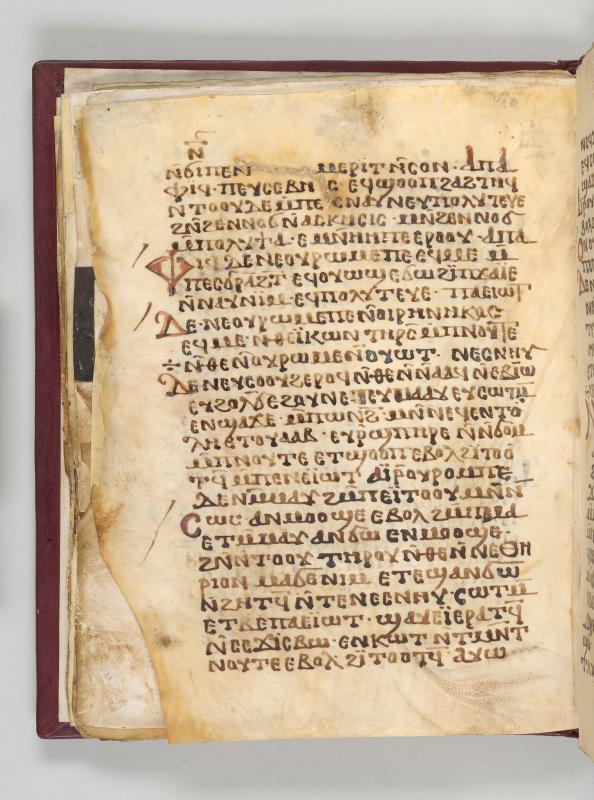 ϥⲏ
ⲛϭⲓⲡⲉⲛ ⲙⲉⲣⲓⲧ ⲛⲥⲟⲛ · ⲁⲡⲁ
ⲫⲓϥ · ⲡⲉⲩⲥⲉⲃⲏⲥ · ⲉϥϣⲟⲟⲡ ϩⲁϩⲧⲏϥ
ⲛⲧⲟⲟⲩ ⲇⲉ ⲙⲡⲉⲥⲛⲁⲩ ⲛⲉⲩⲡⲟⲗⲩⲧⲉⲩⲉ
ϩⲛϩⲉⲛⲛⲟϭ ⲛⲁⲥⲕⲏⲥⲓⲥ · ⲙⲛϩⲉⲛⲛⲟϭ
ⲙⲡⲟⲗⲩⲧⲓⲁ · ⲉⲙⲛⲏⲡⲉ ⲉⲣⲟⲟⲩ · ⲁⲡⲁ
ⲫⲓϥ ⲇⲉ ⲛⲉⲟⲩⲣⲱⲙⲉ ⲡⲉ ⲉϥⲙⲉ ⲙ
ⲡⲉⲥϭⲣⲁϩⲧ · ⲉϥⲟⲩⲱϣ ⲉϭⲱ ϩⲓⲡϫⲁⲓⲉ
ⲛⲛⲁⲩ ⲛⲓⲙ · ⲉϥⲡⲟⲗⲩⲧⲉⲩⲉ · ⲡⲁⲉⲓⲱⲧ
ⲇⲉ · ⲛⲉⲟⲩⲣⲱⲙⲉ ⲡⲉ ⲛⲟⲓⲣⲏⲛⲏⲕⲟⲥ
ⲉϥⲙⲉ · ⲛⲑⲓⲕⲱⲛ ⲧⲏⲣⲥ ⲙⲡⲛⲟⲩⲧⲉ
ⲛⲑⲉ ⲛⲟⲩⲣⲱⲙⲉ ⲛⲟⲩⲱⲧ · ⲛⲉⲥⲛⲏⲩ
ⲇⲉ ⲛⲉⲩⲥⲟⲟⲩϩ ⲉⲣⲟϥ ⲛⲑⲉ ⲛⲛⲁϥ ⲛⲉⲃⲓⲱ
ⲉⲩϩⲟⲗϭ ⲉϩⲟⲩⲛ ⲉⲡⲉⲩⲙⲁⲩ ⲉⲩⲥⲱⲧⲙ
ⲉⲛϣⲁϫⲉ · ⲙⲡⲱⲛϩ · ⲙⲛⲛⲉϥⲉⲛⲧⲟ
ⲗⲏ ⲉⲧⲟⲩⲁⲁⲃ · ⲉⲩⲣϣⲡⲏⲣⲉ ⲛⲛϭⲟⲙ
ⲙⲡⲛⲟⲩⲧⲉ ⲉⲧϣⲟⲟⲡ ⲉⲃⲟⲗ ϩⲓⲧⲟⲟ
ⲧϥ ⲙⲡⲉⲛⲉⲓⲱⲧ ⲁⲓⲣⲟⲩⲣⲟⲙⲡⲉ
ⲇⲉ ⲛⲙⲙⲁⲩ ϩⲙⲡⲉⲓⲧⲟⲟⲩ ⲙⲛⲛ
ⲥⲱⲥ ⲁⲛⲙⲟⲟϣⲉ ⲉⲃⲟⲗ ϩⲙⲡⲙⲁ
ⲉⲧⲙⲙⲁⲩ ⲁⲛϭⲱ ⲉⲛⲙⲟⲟϣⲉ ·
ϩⲛⲛⲧⲟⲟⲩ ⲧⲏⲣⲟⲩ ⲛⲑⲉ ⲛⲛⲉⲑⲏ
ⲣⲓⲟⲛ ⲙⲁ ⲇⲉ ⲛⲓⲙ ⲉⲧⲉϣⲁⲛϭⲱ
ⲛϩⲏⲧϥ ⲛⲧⲉⲛⲉⲥⲛⲏⲩ · ⲥⲱⲧⲙ
ⲉⲧⲃⲉⲡⲁⲉⲓⲱⲧ · ϣⲁⲩⲉⲓ ⲉⲣⲁⲧϥ
ⲛⲥⲉϫⲓⲥⲃⲱ · ⲉⲛⲕⲱⲧ ⲛⲧⲙⲛⲧ
ⲛⲟⲩⲧⲉ ⲉⲃⲟⲗ ϩⲓⲧⲟⲟⲧϥ ⲁⲩⲱ